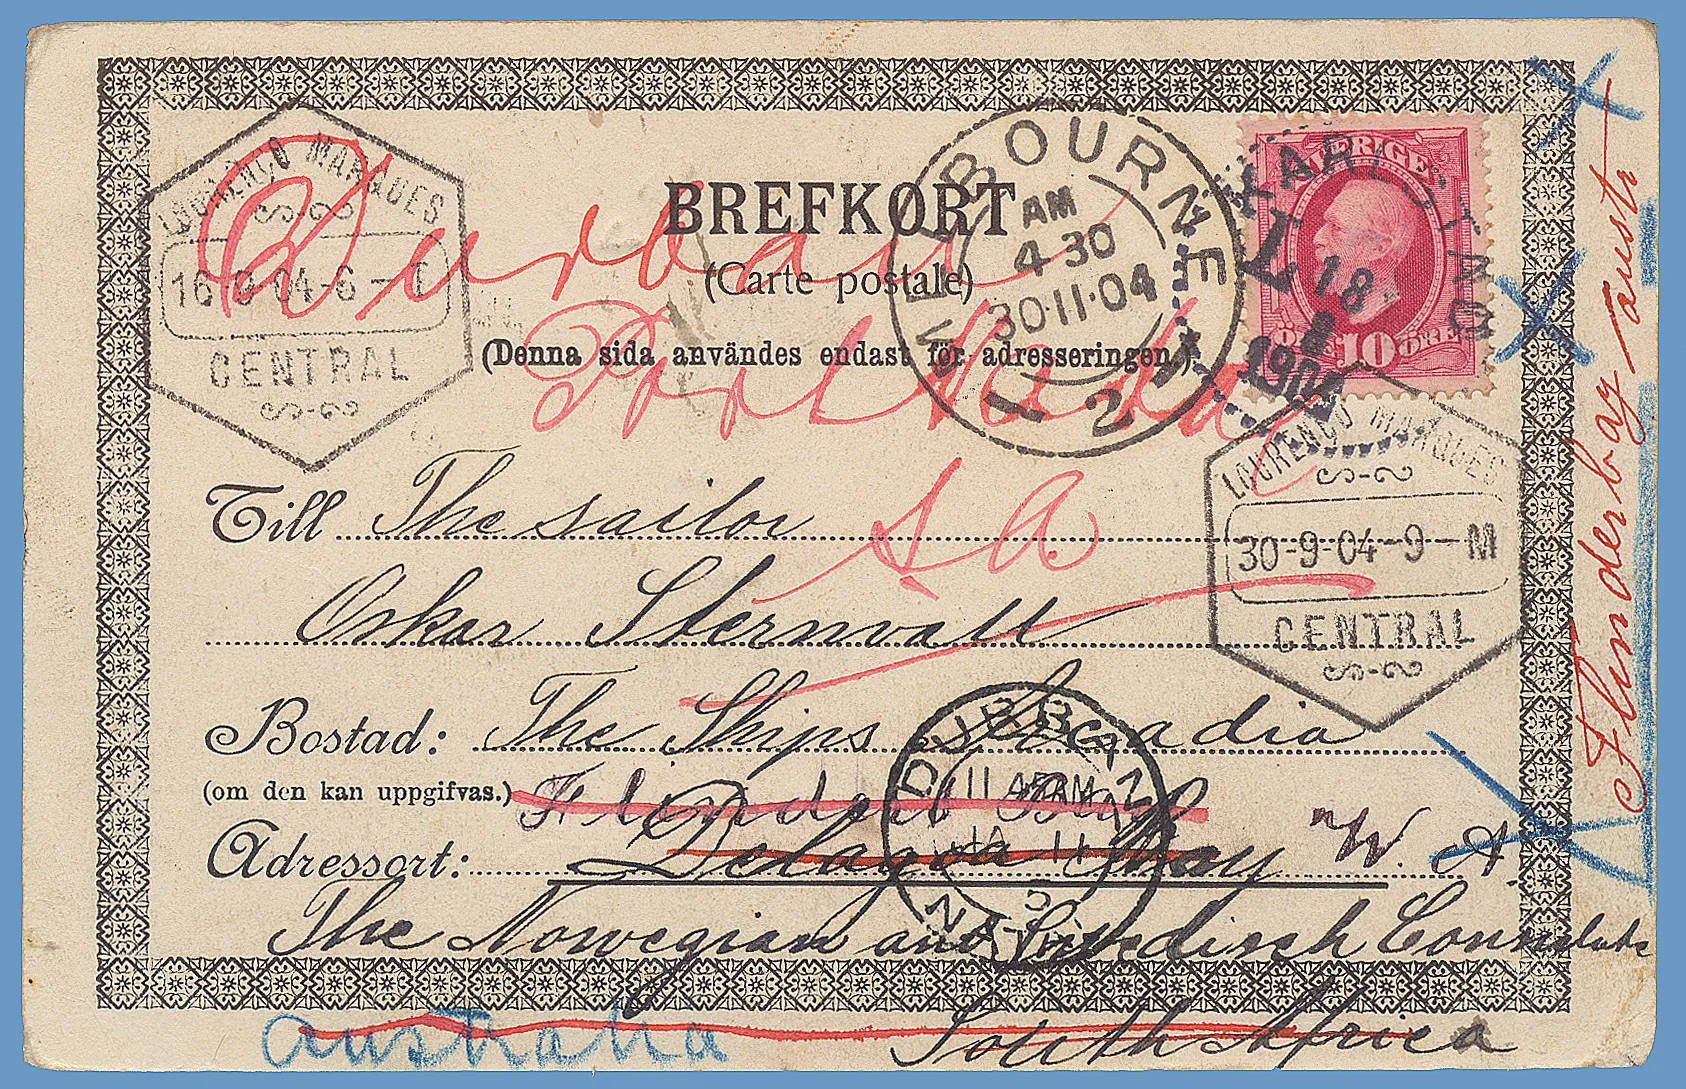 BREFKORT
(Carte postale)
(Denna sida användes endast för adresseringen.)
LOURENÇO MARQUES
16-9-04-6-T
CENTRAL
Durban
Port Natal
S A
MELBOURNE
AM
4 30
30·11·04
1 2
SVERIGE
10 ÖRE
KARLSTAD
18
8
1904
LOURENÇO MARQUES
30-9-04-9-M
CENTRAL
Till The sailor
Oskar Sternvall
Bostad: The Ships
(om den kan uppgifvas.) Flinders Bay
Adressort: Delagoa Bay W. A
The Nowegian and Swedisch
South Africa
Australia
DURBAN
NATAL
Flinderbay austr